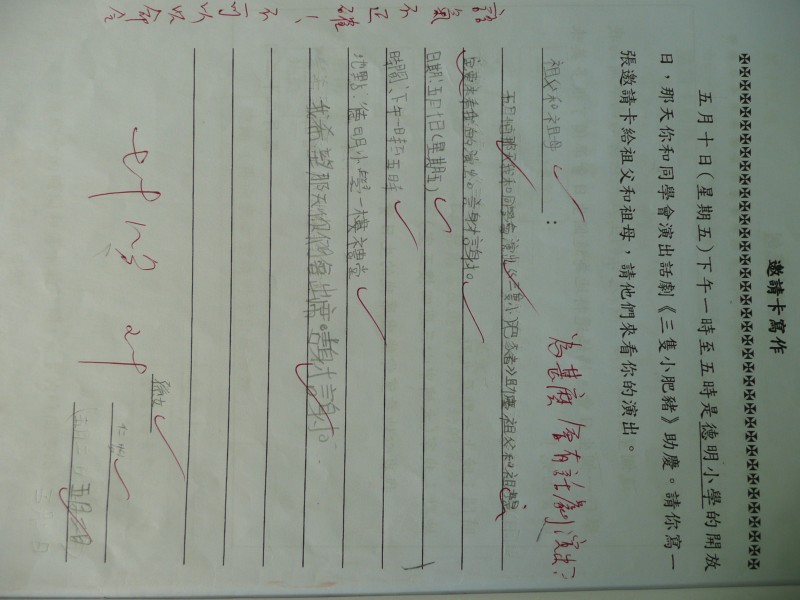 邀請卡寫作
五月十日(星期五)下午一時至五時是德明小學的開放
日,那天你和同學會演出話劇《三隻小肥豬》助慶。請你寫一
張邀請卡給祖父和祖母,請他們來看你的演出。
為甚麼會有話劇演出?
祖父和祖母:
五月十日那天我和同學會演出《三隻小肥豬》助慶祖父和祖母
來看我的演出。謝謝。
日期:五月十日(星期五)
時間:下午一時至五時
地點:德明小學一樓禮堂
我希望那天你們會出席。謝謝。
五月
語氣不正確!不可以命令